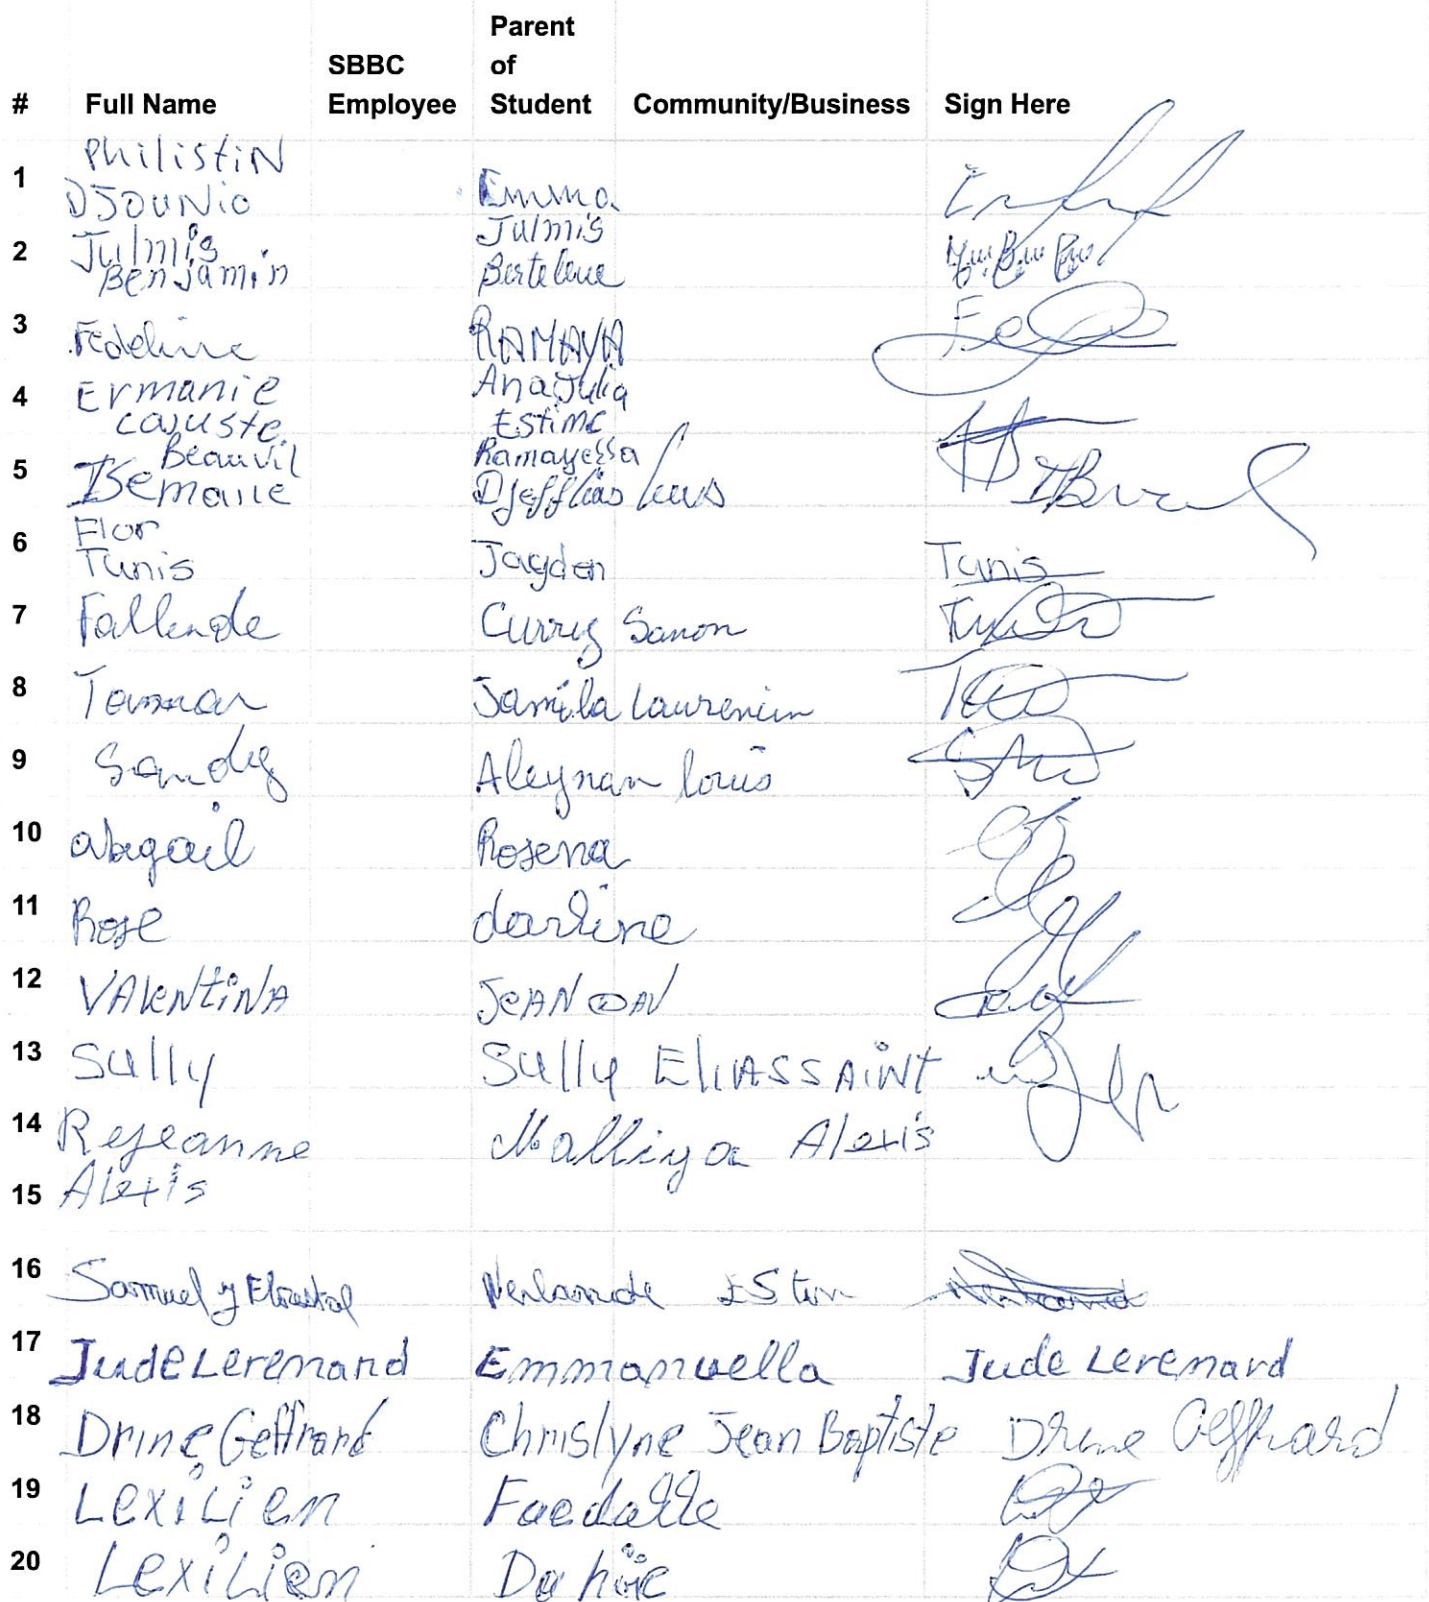 Parent
SBBC of
# Full Name Employee Student Community/Business Sign Here
Philistin
1 Djounio Emma
2 Julmis Julmis
Benjamin
3 Fedeline RAMAYA
4 Ermanie Ana Julia
Cajuste Estime
Beauvil Ramayessa
5
Flor
6 Tunis Jayden Tunis
7 Fallende Curry Sanon
8 Tamar Jamila Laurencin
9 Sandy Aleynan louis
10 abigail Rosena
11 Rose darline
12 VAlENtiNA JeAN
13 Sully Sully EliASSAiNt
14 Rejeanne Malliya Alexis
15 Alexis
16 Samuel Nerlande
17 Jude Leremard Emmanuella Jude Leremard
18 Drine Geffrard Chrislyne Jean Baptiste Drine Geffrard
19 Lexilien Faedalle
20 Lexilien